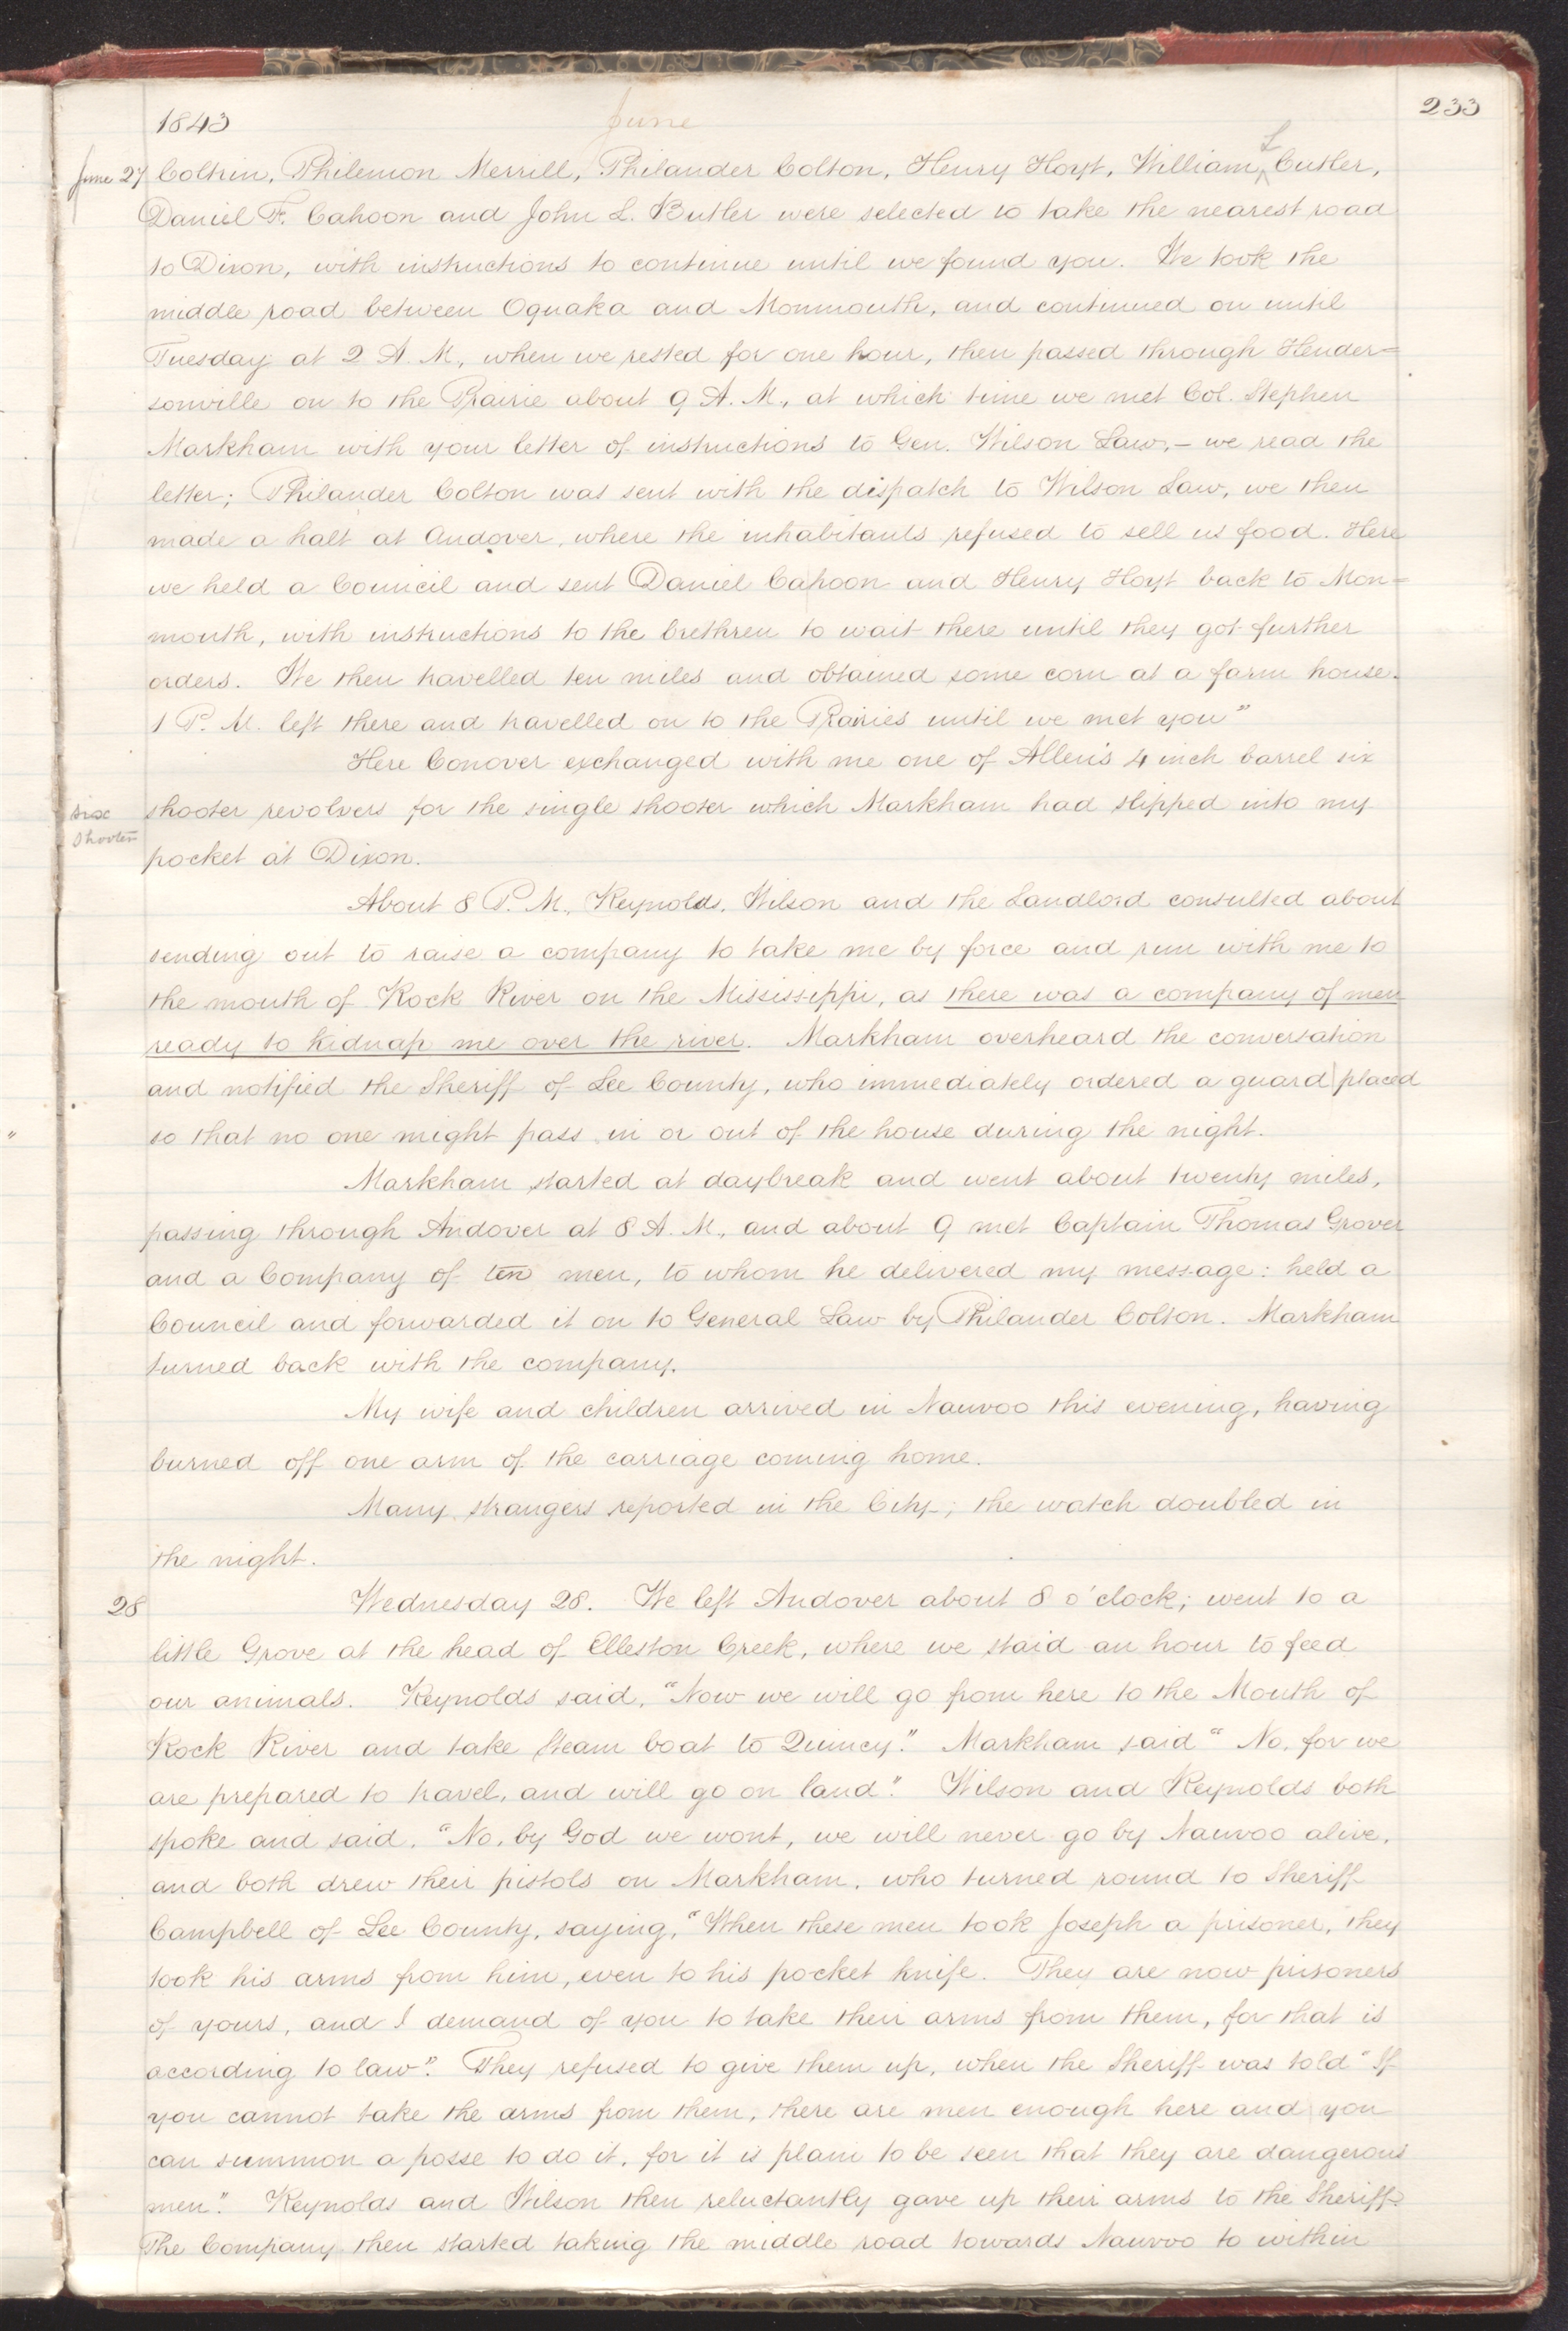 233
1843 June
June 27 Coltrin, Philemon Merrill, Philander Colton, Henry Hoyt, William L Cutler,
Daniel F. Cahoon and John L. Butler were selected to take the nearest road
to Dixon, with instructions to continue until we found you. We took the
middle road between Oquaka and Monmouth, and continued on until
Tuesday at 2 A. M., when we rested for one hour, then passed through Hender=
sonville on to the Prairie about 9 A. M., at which time we met Col. Stephen
Markham with your letter of instructions to Gen. Wilson Law,— we read the
letter; Philander Colton was sent with the dispatch to Wilson Law, we then
made a halt at Andover, where the inhabitants refused to sell us food. Here
we held a Council and sent Daniel Cahoon and Henry Hoyt back to Mon=
mouth, with instructions to the brethren to wait there until they got further
orders. We then travelled ten miles and obtained some corn at a farm house.
1 P. M. left there and travelled on to the Prairies until we met you"
Here Conover exchanged with me one of Allen's 4 inch barrel six
six shooter shooter revolvers for the single shooter which Markham had slipped into my
pocket at Dixon.
About 8 P. M., Reynolds, Wilson and the Landlord consulted about
sending out to raise a company to take me by force and run with me to
the mouth of Rock River on the Mississippi, as there was a company of men
ready to kidnap me over the river. Markham overheard the conversation
and notified the Sheriff of Lee County, who immediately ordered a guard placed
so that no one might pass in or out of the house during the night.
Markham started at daybreak and went about twenty miles,
passing through Andover at 8 A. M., and about 9 met Captain Thomas Grover
and a Company of ten men, to whom he delivered my message: held a
Council and forwarded it on to General Law by Philander Colton. Markham
turned back with the company.
My wife and children arrived in Nauvoo this evening, having
burned off one arm of the carriage coming home.
Many strangers reported in the City; the watch doubled in
the night.
28 Wednesday 28. We left Andover about 8 o'clock; went to a
little Grove at the head of Elleston Creek, where we staid an hour to feed
our animals. Reynolds said, "Now we will go from here to the Mouth of
Rock River and take Steam boat to Quincy." Markham said "No, for we
are prepared to travel, and will go on land." Wilson and Reynolds both
spoke and said, "No, by God we wont, we will never go by Nauvoo alive,
and both drew their pistols on Markham, who turned round to Sheriff
Campbell of Lee County, saying, "When these men took Joseph a prisoner, they
took his arms from him, even to his pocket knife. They are now prisoners
of yours, and I demand of you to take their arms from them, for that is
according to law". They refused to give them up, when the Sheriff was told "If
you cannot take the arms from them, there are men enough here and you
can summon a posse to do it, for it is plain to be seen that they are dangerous
men". Reynolds and Wilson then reluctantly gave up their arms to the Sheriff.
The Company then started taking the middle road towards Nauvoo to within